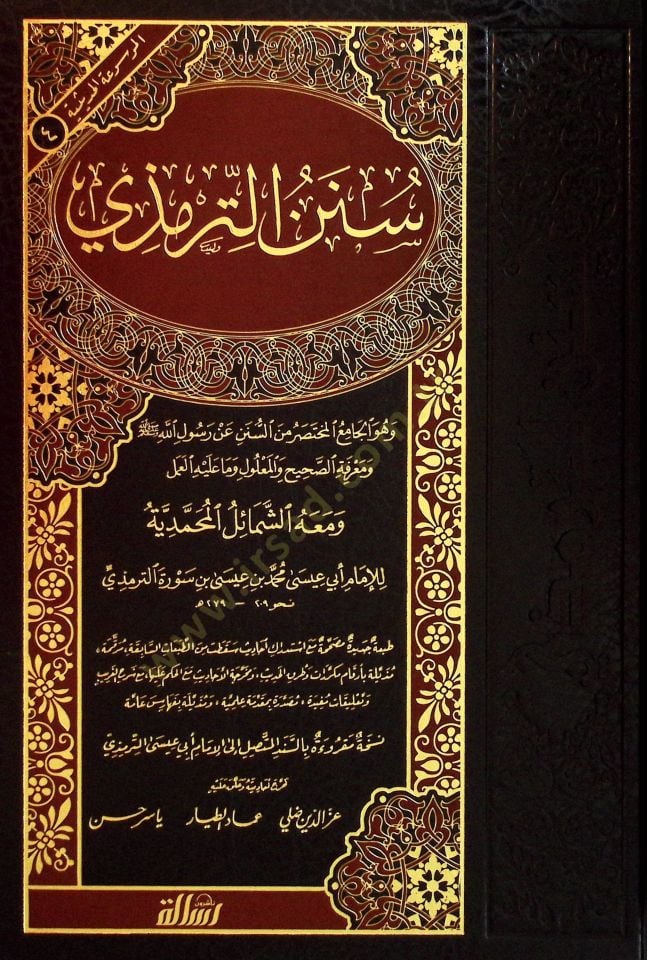 الموسوعة الحديثية
٤
سُنَنُ التِّرمذي
وَهُوَ الجَامِعُ المُختَصَرُ مِنَ السُّنَنِ عَنْ رَسُولِ اللهِ ﷺ
وَمَعْرِفَةِ الصَّحِيحِ وَالمَعْلُولِ وَمَا عَلَيْهِ العَمَل
وَمَعَهُ الشَّمَائِلُ المُحَمَّدِيَّةُ
لِلإمَامِ أَبِي عِيسَىٰ مُحَمَّدِ بْنِ عِيسَىٰ بْنِ سَوْرَةَ التِّرمِذِيِّ
نحو ٢٠٩ - ٢٧٩ هـ
طبعةٌ جديدةٌ مصحّحةٌ مع استدراك أحاديث سقطت من الطبعات السابقة، مرقّمة،
مُذيَّلة بأرقام مكرّرات وطرف الحديث، ومخرّجة الأحاديث مع الحكم عليها، مع شرح الغريب
وتعليقات مفيدة، مُصدَّرة بمقدّمة علميّة، ومُذيَّلة بفهارس عامّة
نُسخةٌ مَقروءةٌ بالسَّندِ المتَّصِل إلى الإمام أبي عيسىٰ التِّرمِذِيِّ
خَرَّجَ أَحَادِيثَهُ وَعَلَّقَ عَلَيْهِ
عزّ الدين ضلي عماد الطيار ياسر حسن
رسالة
ناشرون
www.irsad.com